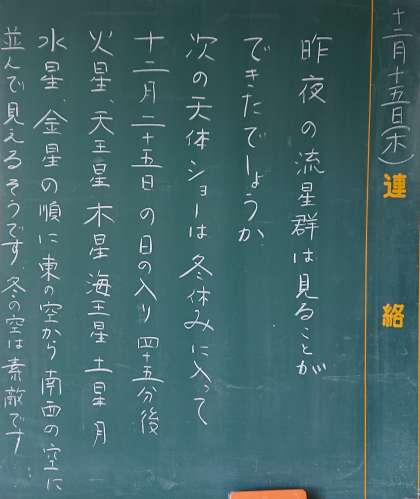 十二月十五日(木)
連絡
昨夜の流星群は見ることが
できたでしょうか
次の天体ショーは冬休みに入って
十二月二十五日の日の入り四十五分後
火星、天王星木星海王星土星月
水星、金星の順に東の空から南西の空に
並んで見えるそうです。冬の空は素敵です…